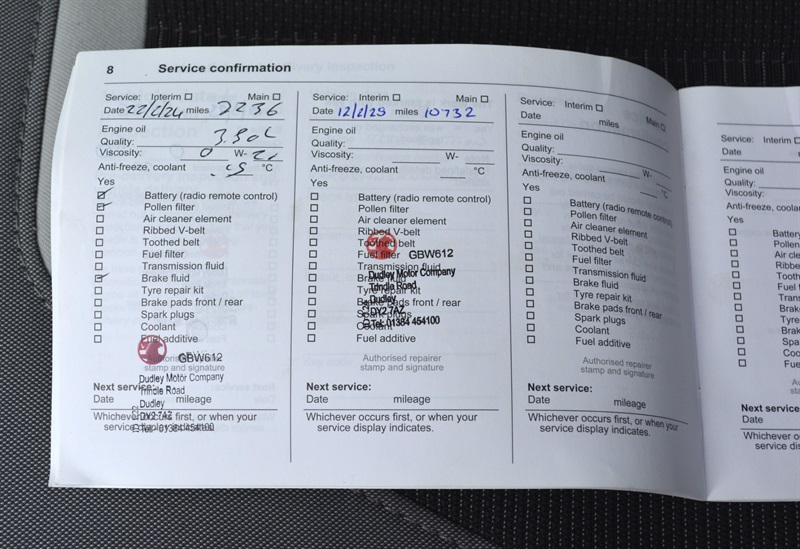 8 Service confirmation
Service: Interim Main
Date 22/2/24 miles 7236
Engine oil
Quality: 3.90L
Viscosity: 0 W- 20
Anti-freeze, coolant °C
Yes
Battery (radio remote control)
Pollen filter
Air cleaner element
Ribbed V-belt
Toothed belt
Fuel filter
Transmission fluid
Brake fluid
Tyre repair kit
Brake pads front / rear
Spark plugs
Coolant
Fuel additive
Authorised repairer
stamp and signature
GBW612
Dudley Motor Company
Trindle Road
Dudley
DY2 7AZ
Tel: 01384 454100
Next service:
Date mileage
Whichever occurs first, or when your
service display indicates.
Service: Interim Main
Date 12/2/25 miles 10732
Engine oil
Quality:
Viscosity: W-
Anti-freeze, coolant °C
Yes
Battery (radio remote control)
Pollen filter
Air cleaner element
Ribbed V-belt
Toothed belt
Fuel filter
Transmission fluid
Brake fluid
Tyre repair kit
Brake pads front / rear
Spark plugs
Coolant
Fuel additive
GBW612
Dudley Motor Company
Trindle Road
Dudley
DY2 7AZ
Tel: 01384 454100
Authorised repairer
stamp and signature
Next service:
Date mileage
Whichever occurs first, or when your
service display indicates.
Service: Interim Main
Date miles
Engine oil
Quality:
Viscosity: W-
Anti-freeze, coolant °C
Yes
Battery (radio remote control)
Pollen filter
Air cleaner element
Ribbed V-belt
Toothed belt
Fuel filter
Transmission fluid
Brake fluid
Tyre repair kit
Brake pads front / rear
Spark plugs
Coolant
Fuel additive
Authorised repairer
stamp and signature
Next service:
Date mileage
Whichever occurs first, or when your
service display indicates.
Service: Interim
Date
Engine oil
Quality:
Viscosity:
Anti-freeze, coolant
Yes
Battery
Pollen
Air cle
Ribbe
Tooth
Fuel f
Trans
Brak
Tyre
Brak
Spa
Coo
Fue
Next service
Date
Whichever o
service di